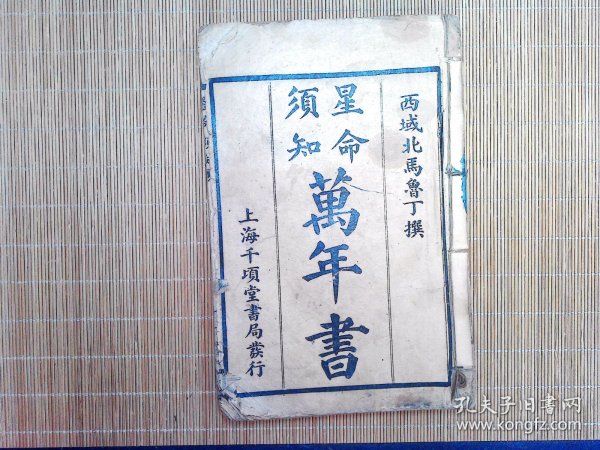 西域北馬魯丁撰
星命
須知
萬年書
上海千頃堂書局發行
孔夫子旧书网
www.kongfz.com